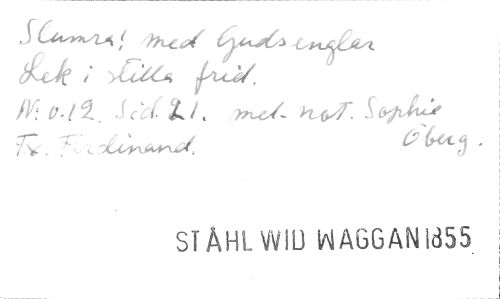 Slumra! med Guds englar
Lek i stilla frid.
N:o 12. Sid. 21. med not. Sophie
Fx. Ferdinand. Öberg.
STÅHL WID WAGGAN 1855